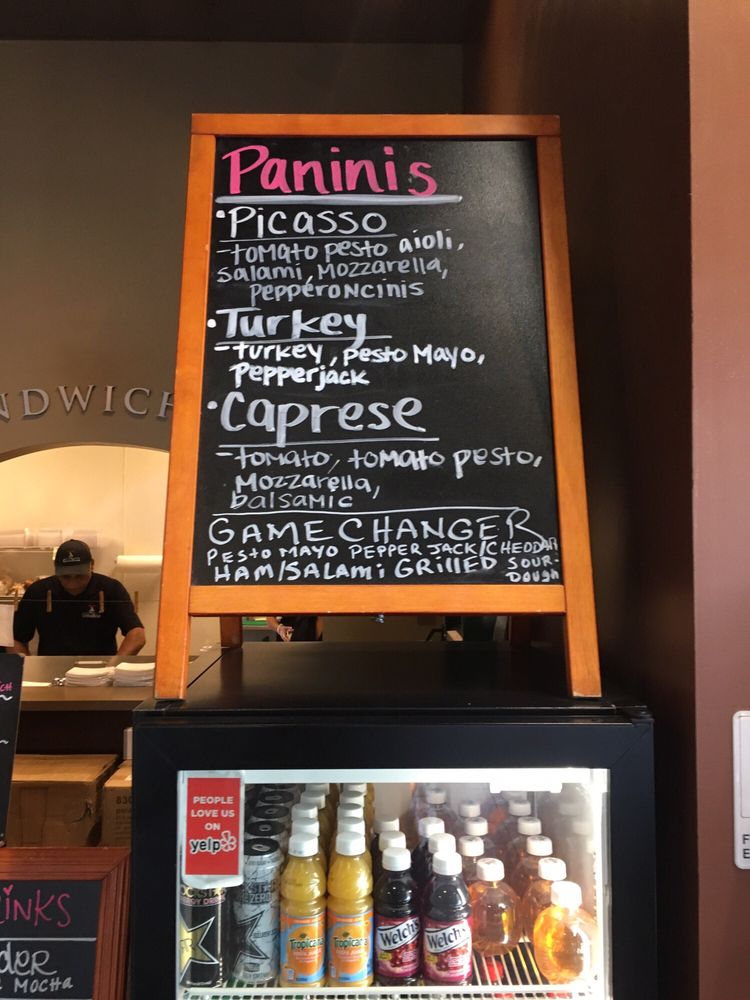 Paninis
•Picasso
-tomato pesto aioli,
Salami, Mozzarella,
Pepperoncinis
•Turkey
-turkey, pesto Mayo,
Pepperjack
•Caprese
-tomato, tomato pesto,
Mozzarella,
balsamic
GAME CHANGER
PESTO MAYO PEPPER JACK/CHEDDAR
HAM/SALAMi GRillED SOUR-
DOUGH
NDWICH
PEOPLE
LOVE US
ON
yelp
Tropicana
Tropicana
Welch's
Welch's
INKS
DER
MOCHA